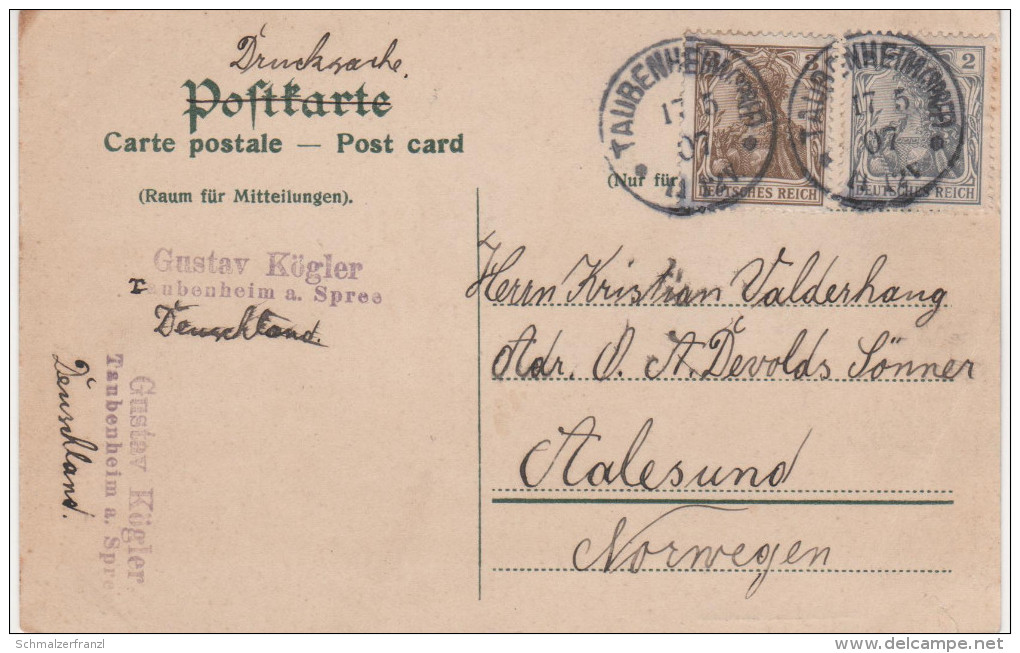 Drucksache.
Postkarte
Carte postale — Post card
(Raum für Mitteilungen).
(Nur für
TAUBENHEIM (SPREE)
17 5
07
3
DEUTSCHES REICH
TAUBENHEIM (SPREE)
17 5
07
2
DEUTSCHES REICH
Gustav Kögler
Taubenheim a. Spree
Deuschland.
Gustav Kögler
Taubenheim a. Spre
Deuschland.
Herrn Kristian Valderhaug
Adr. O. A. Devolds Sönner
Aalesund
Norwegen
Schmalzerfranzl
delcampe.net